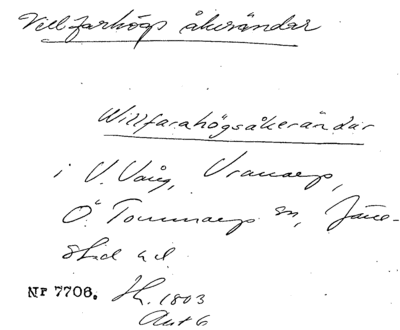 Villfarhögs åkerändar
Willfarahögsåkerändar
i V. Vång, Vranarp,
Ö. Tommarp sn, Järre-
stad hd
NF 7706. Sk. 1803
Akt 6